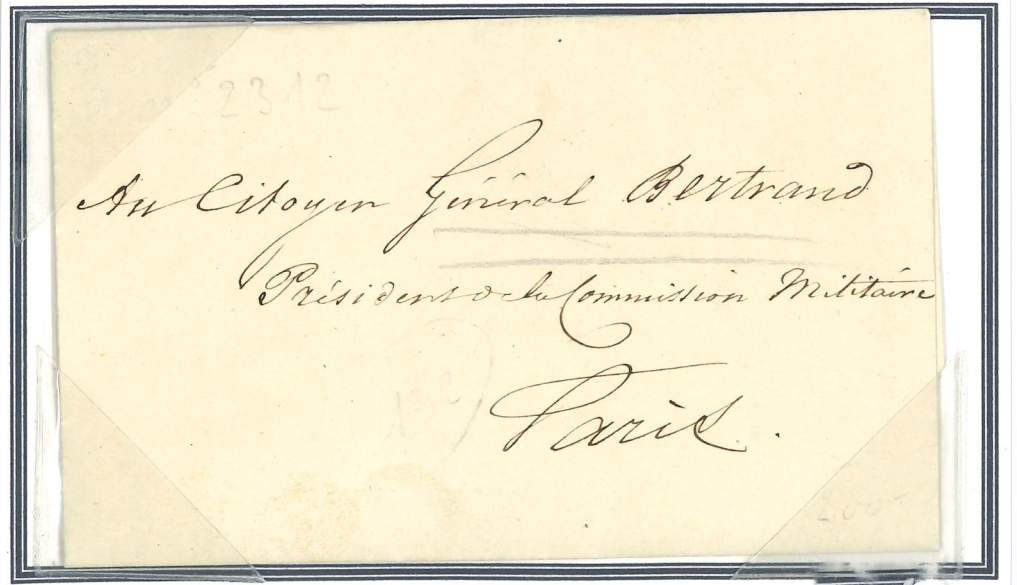 2312
Au Citoyen Général Bertrand
Président de la Commission Militaire
Paris.
200